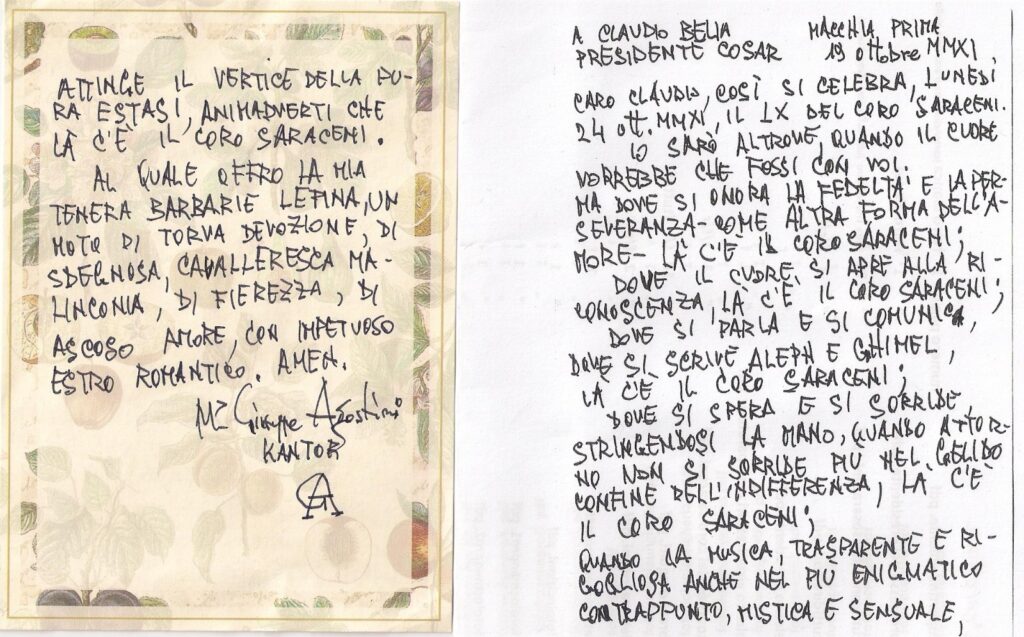 A CLAUDIO BELIA MACCHIA PRIMA
PRESIDENTE COSAR 19 ottobre MMXI,
CARO CLAUDIO, COSÌ SI CELEBRA, LUNEDÌ
24 ott. MMXI, IL LX DEL CORO SARACENI.
IO SARÒ ALTROVE, QUANDO IL CUORE
VORREBBE CHE FOSSI CON VOI.
MA DOVE SI ONORA LA FEDELTÀ E LA PER-
SEVERANZA - COME ALTRA FORMA DELL'A-
MORE - LÀ C'È IL CORO SARACENI;
DOVE IL CUORE SI APRE ALLA RI-
CONOSCENZA, LÀ C'È IL CORO SARACENI;
DOVE SI PARLA E SI COMUNICA,
DOVE SI SCRIVE ALEPH E GHIMEL,
LÀ C'È IL CORO SARACENI;
DOVE SI SPERA E SI SORRIDE,
STRINGENDOSI LA MANO, QUANDO ATTOR-
NO NON SI SORRIDE PIÙ NEL GELIDO
CONFINE DELL'INDIFFERENZA, LÀ C'È
IL CORO SARACENI;
QUANDO LA MUSICA, TRASPARENTE E RI-
GOGLIOSA ANCHE NEL PIÙ ENIGMATICO
CONTRAPPUNTO, MISTICA E SENSUALE,
ATTINGE IL VERTICE DELLA PU-
RA ESTASI, ANIMADVERTI CHE
LÀ C'È IL CORO SARACENI.
AL QUALE OFFRO LA MIA
TENERA BARBARIE LEPINA, UN
MOTO DI TORVA DEVOZIONE, DI
SDEGNOSA, CAVALLERESCA MA-
LINCONIA, DI FIEREZZA, DI
ASCOSO AMORE, CON IMPETUOSO
ESTRO ROMANTICO. AMEN.
M° Giuseppe Agostini
KANTOR
GA